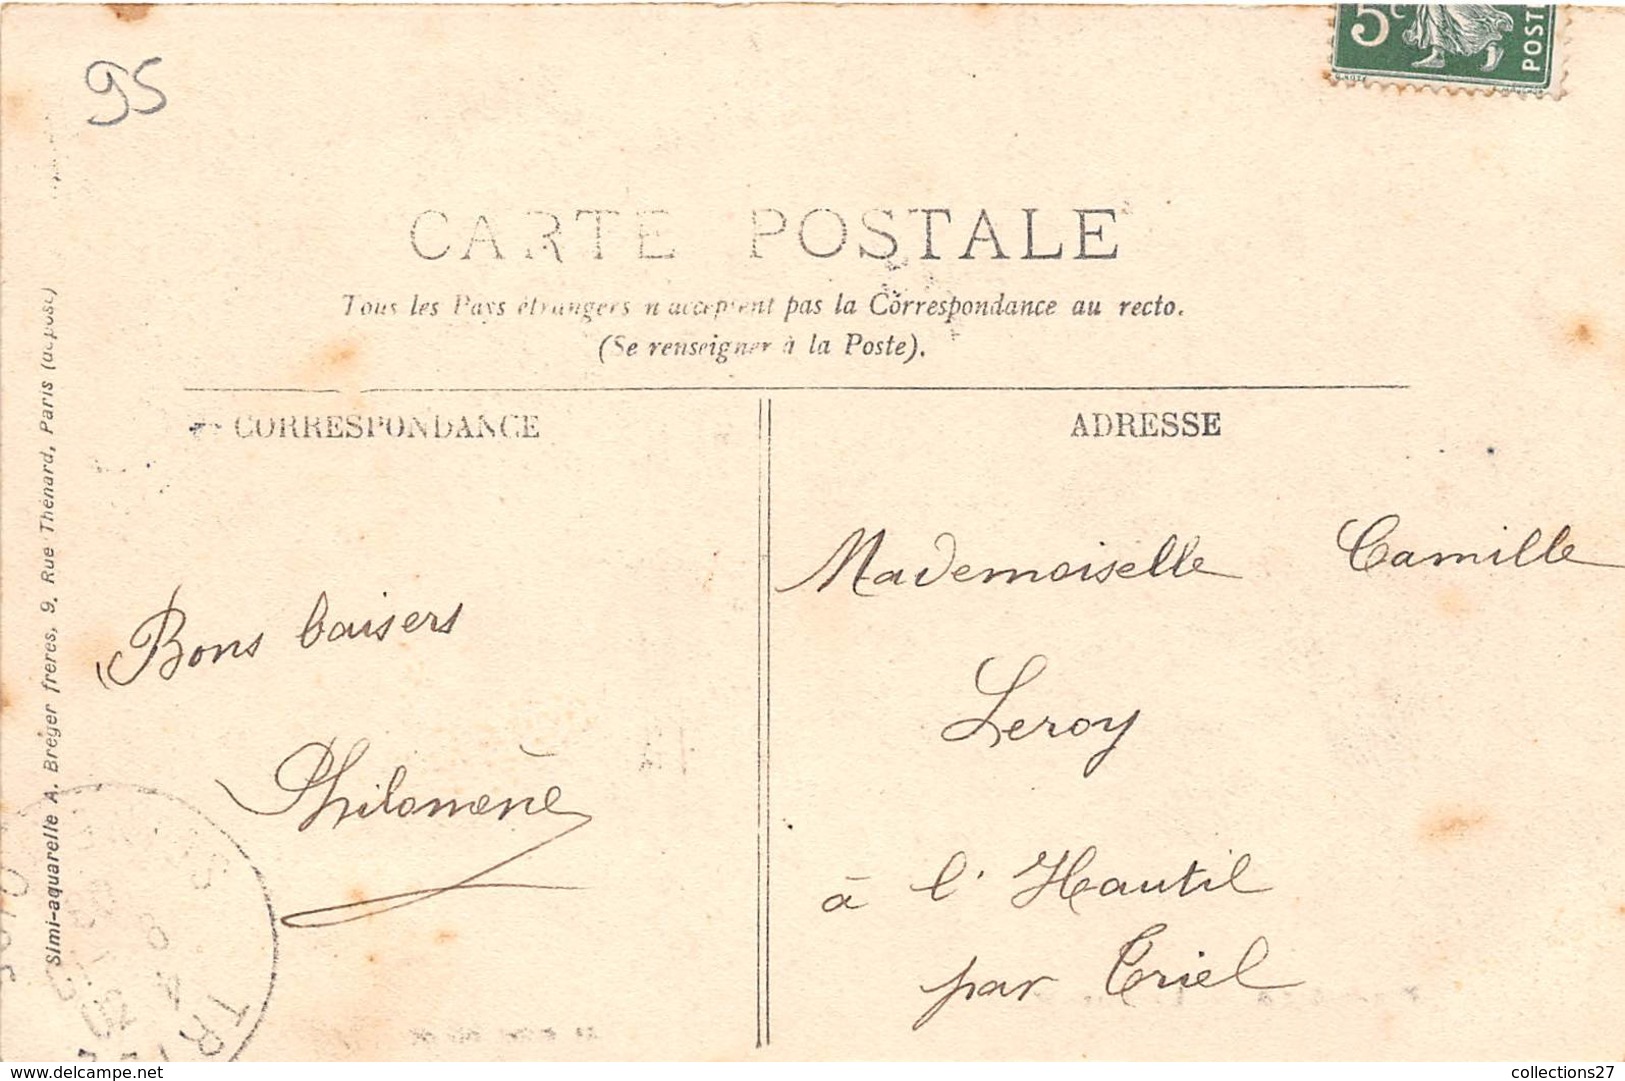 95
5c
POST
CARTE POSTALE
Tous les Pays étrangers n'acceptent pas la Correspondance au recto.
(Se renseigner à la Poste).
CORRESPONDANCE
ADRESSE
Simi-aquarelle A. Breger frères, 9, Rue Thénard, Paris (déposé)
Bons baisers
Philomène
Mademoiselle Camille
Leroy
à l'Hautil
par Triel
TRI
delcampe.net
collections27